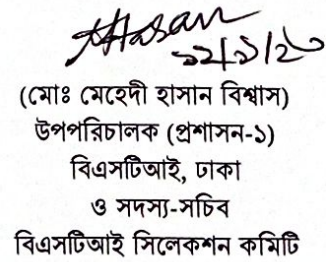 Hasan
(মোঃ মেহেদী হাসান বিশ্বাস)
উপপরিচালক (প্রশাসন-১)
বিএসটিআই, ঢাকা
ও সদস্য-সচিব
বিএসটিআই সিলেকশন কমিটি